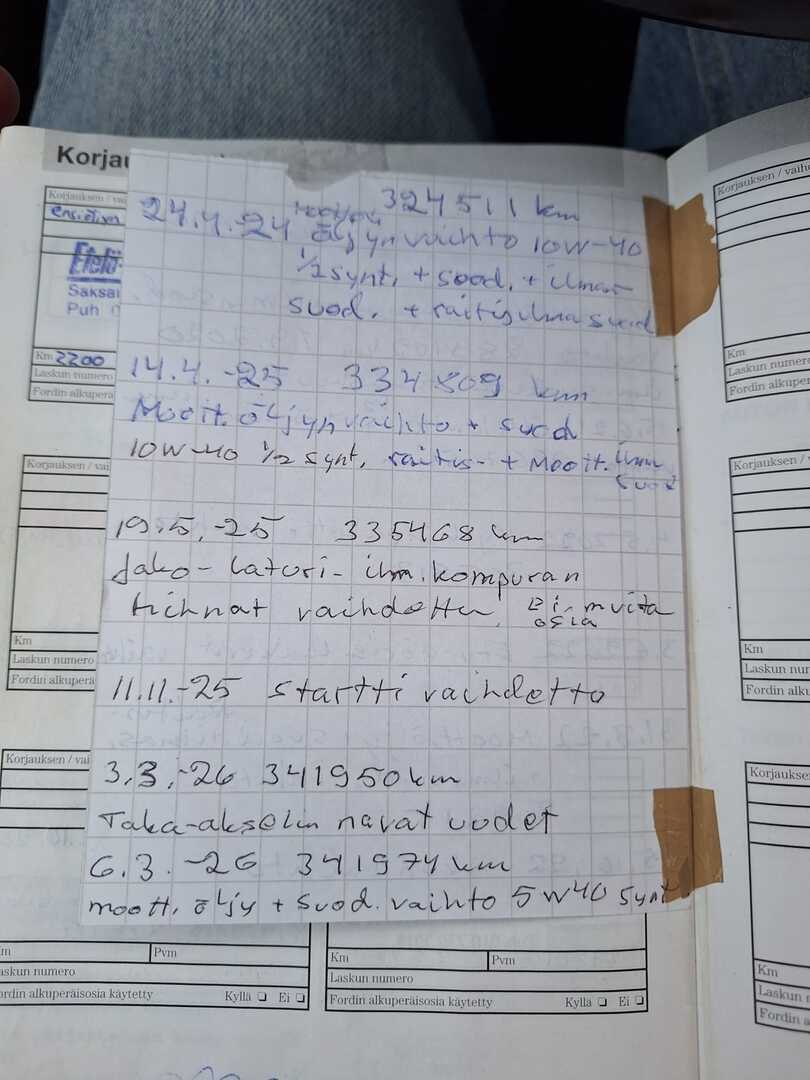 324511 km
24.4.-24 Moottori
öljyn vaihto 10W-40
1/2 synt. + suod. + ilman
suod. + raitisilma suod
14.4.-25 334809 km
Moott. öljyn vaihto + suod
10W-40 1/2 synt. raitis- + Moott. ilm
suod
19.5.-25 335468 km
Jako- laturi- ilm. kompuran
hihnat vaihdettu, Ei muita
osia
11.11.-25 startti vaihdettu
3.3.-26 341950 km
Taka-akselin navat uudet
6.3.-26 341974 km
moott. öljy + suod. vaihto 5W40 synt.
Korjau
Korjauksen / vai
Saksa
Puh
Km 2200
Laskun numero
Fordin alkupe
Korjauksen / vai
Km
Laskun numero
Fordin alkuperä
Korjauksen / vai
Pvm
Laskun numero
Fordin alkuperäisosia käytetty Kyllä Ei
Km Pvm
Laskun numero
Fordin alkuperäisosia käytetty Kyllä Ei
Korjauksen / vaihe
Km
Laskun numero
Fordin alkuperä
Korjauksen /
Km
Laskun num
Fordin alku
Korjaukse
Km
Laskun
Fordin a